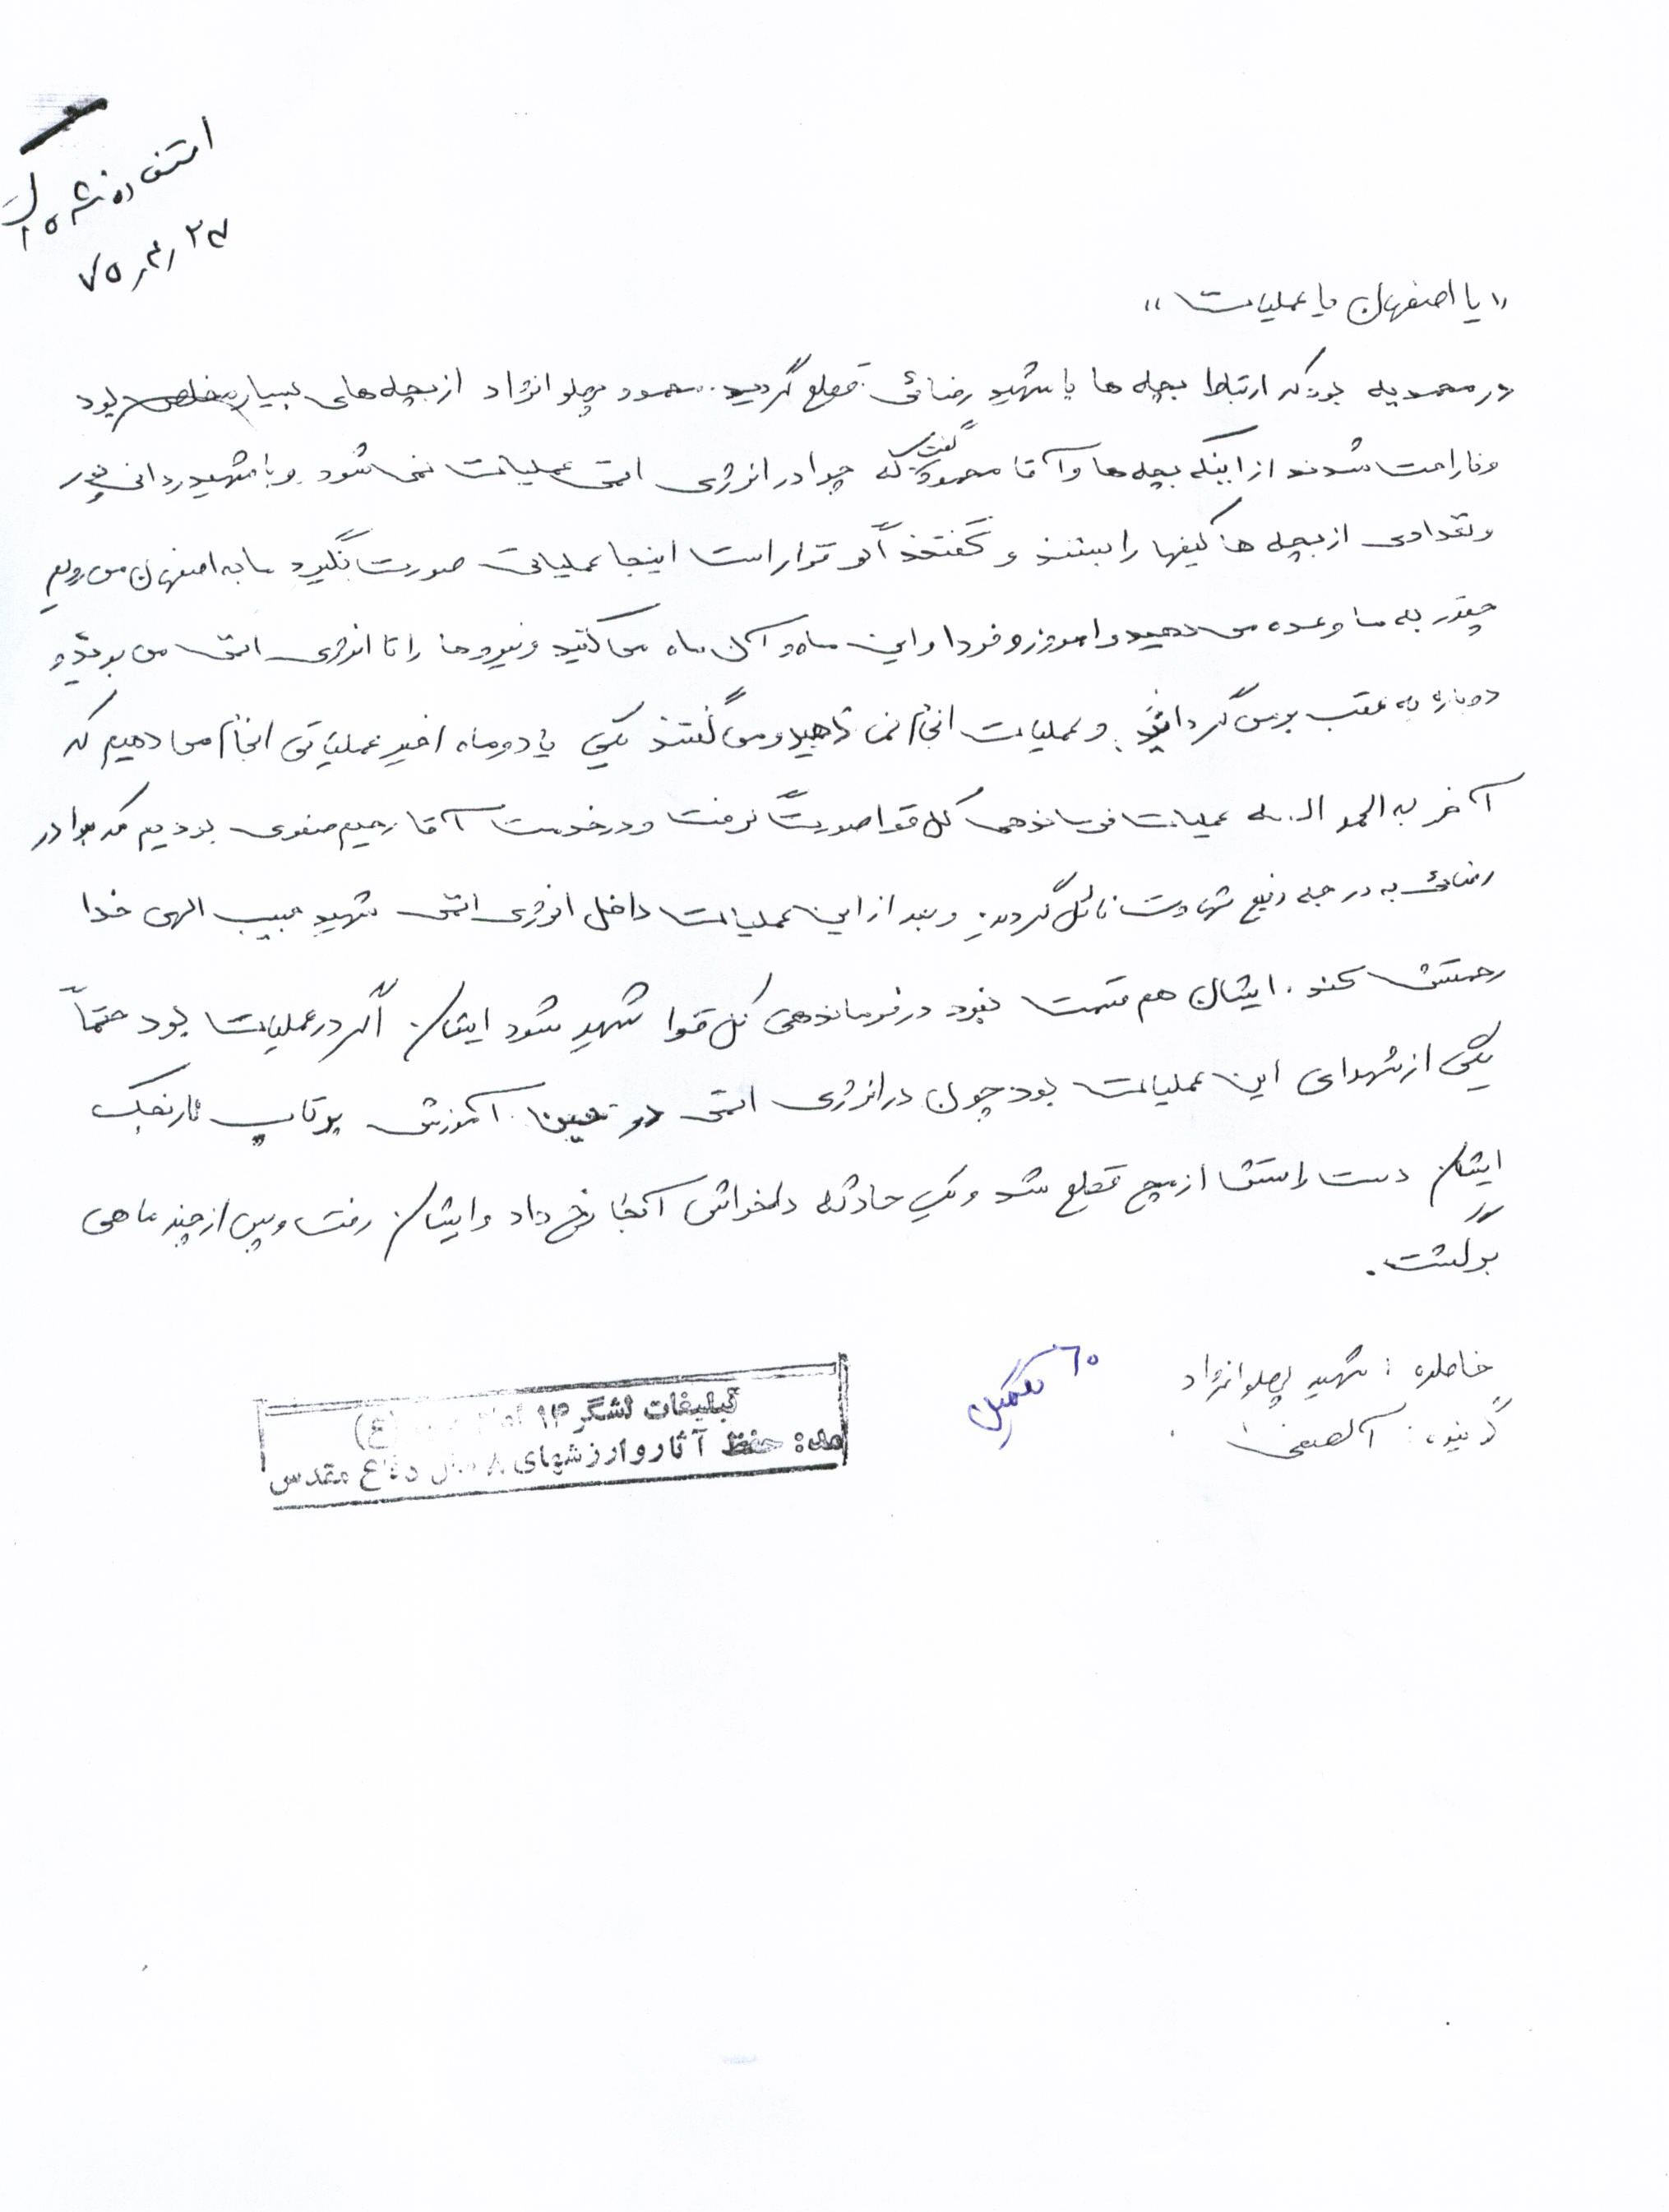 استفاده شده است
۷۵٫۴٫۲۷
«یا اصفهان یا عملیات»
در محمدیه بود که ارتباط بچه ها با شهید رضائی قطع گردید. محمود پهلوانژاد از بچه های بسیار مخلص بود
و ناراحت شدند از اینکه بچه ها و آقا محمود گفت که چرا در انرژی اتمی عملیات نمی شود و با شهید ردانی پور
و تعدادی از بچه ها کیفها را بستند و گفتند اگر قرار است اینجا عملیاتی صورت نگیرد ما به اصفهان می رویم
چقدر به ما وعده می دهید و امروز و فردا و این ماه و آن ماه می کنید و نیروها را تا انرژی اتمی می برید و
دوباره به عقب برمی گردانید و عملیات انجام نمی دهید و می گفتند یکی یا دو ماه اخیر عملیاتی انجام می دهیم که
آخر به الحمد الله عملیات فرماندهی کل قوا صورت گرفت و در خدمت آقا رحیم صفوی بودیم که برادر
رضائی به درجه رفیع شهادت نائل گردید و بعد از این عملیات داخل انرژی اتمی شهید حبیب الهی خدا
رحمتش کند. ایشان هم قسمت نبود در فرماندهی کل قوا شهید شود ایشان اگر در عملیات بود حتماً
یکی از شهدای این عملیات بود چون در انرژی اتمی در حین آموزش پرتاب نارنجک
ایشان دست راستش از مچ قطع شد و یک حادثه دلخراش آنجا رخ داد و ایشان رفت و پس از چند ماهی
برگشت.
خاطره: شهید پهلوانژاد
گوینده:
۶۰ تکمیل
تبلیغات لشگر ۱۴ (ع)
حفظ آثار و ارزشهای ۸ سال دفاع مقدس